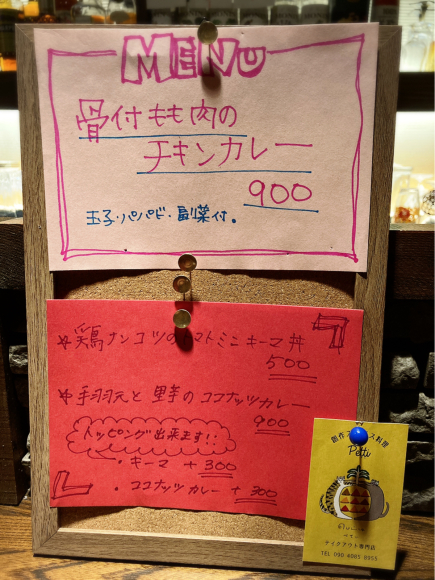 MENU
骨付もも肉の
チキンカレー
900
玉子・パパド・副菜付。
※鶏ナンコツのトマトミニキーマ丼
500
※手羽元と里芋のココナッツカレー
900
トッピング出来ます!!
・キーマ +300
・ココナッツカレー +300
創作スパイス料理
Petti
テイクアウト専門店